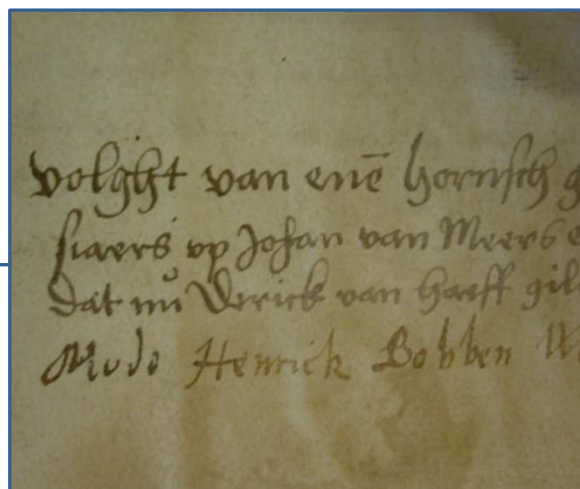 volght van enē hornsch g
siaers vp Johan van Meers e
dat nů Derick van haeff gil
Modo Henrick Bobben W